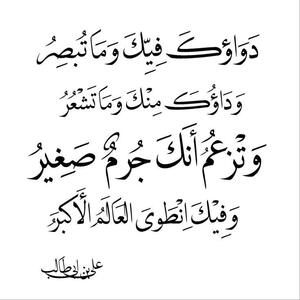 دَوَاؤكَ فِيكَ وَمَا تُبصِرُ
وَدَاؤُكَ مِنْكَ وَمَا تَشْعُرُ
وَتَزعمُ أنكَ جُرمٌ صَغِيرُ
وَفِيْكَ اِنْطَوىَ العَالَمُ الأَكبَرُ
علي بن ابي طالب